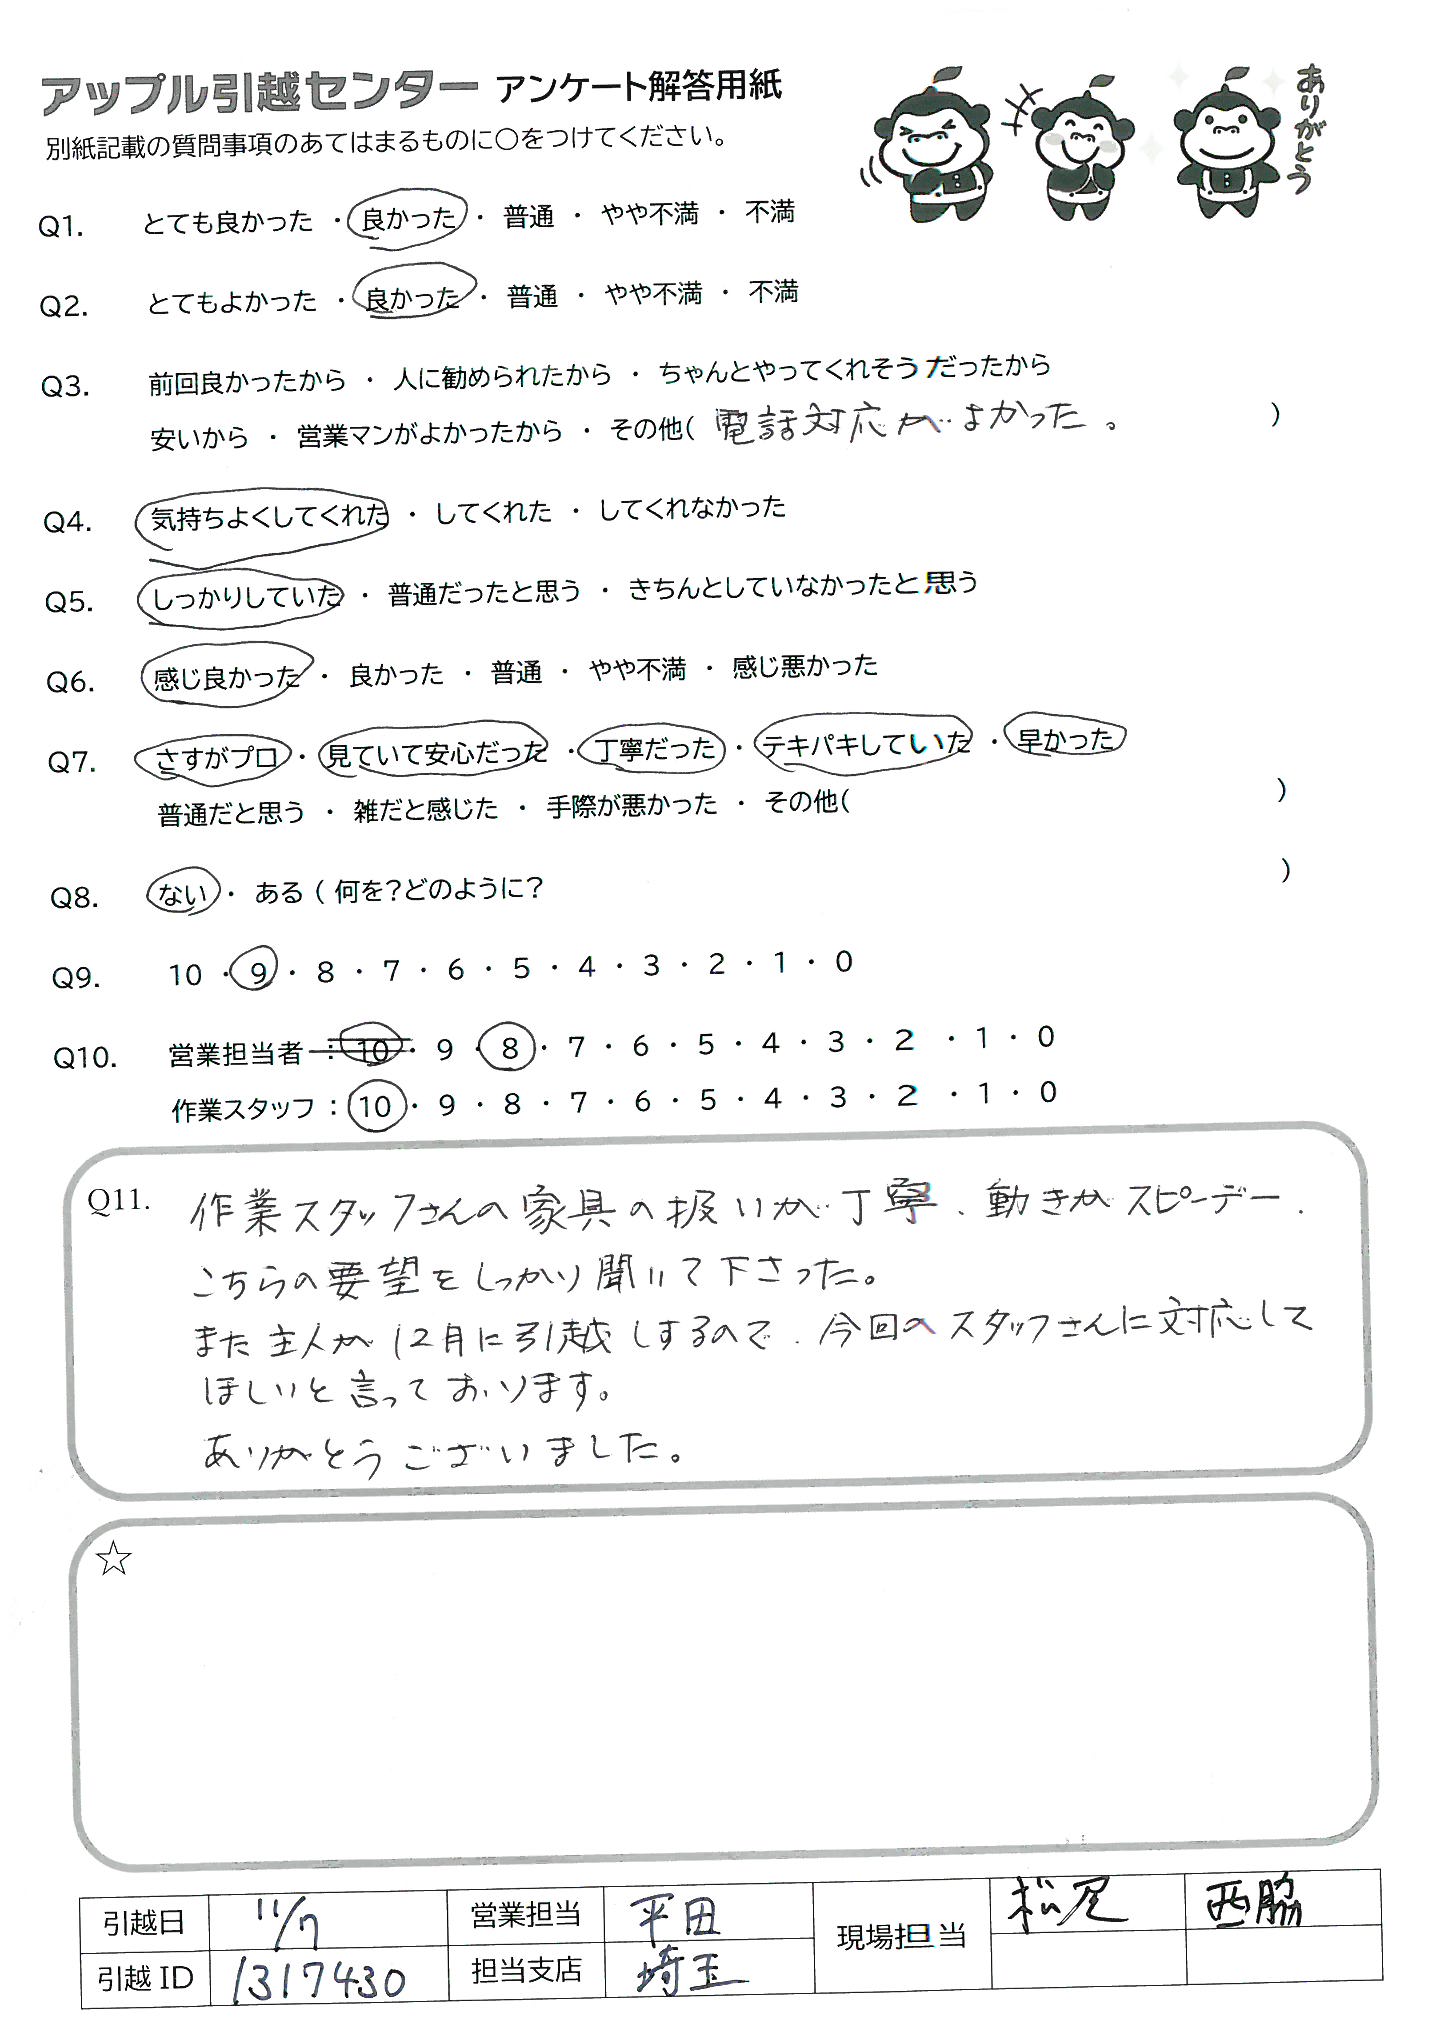 アップル引越センター アンケート解答用紙
ありがとう
別紙記載の質問事項のあてはまるものに○をつけてください。
Q1. とても良かった ・ 良かった ・ 普通 ・ やや不満 ・ 不満
Q2. とてもよかった ・ 良かった ・ 普通 ・ やや不満 ・ 不満
Q3. 前回良かったから ・ 人に勧められたから ・ ちゃんとやってくれそうだったから
安いから ・ 営業マンがよかったから ・ その他( 電話対応がよかった。 )
Q4. 気持ちよくしてくれた ・ してくれた ・ してくれなかった
Q5. しっかりしていた ・ 普通だったと思う ・ きちんとしていなかったと思う
Q6. 感じ良かった ・ 良かった ・ 普通 ・ やや不満 ・ 感じ悪かった
Q7. さすがプロ ・ 見ていて安心だった ・ 丁寧だった ・ テキパキしていた ・ 早かった
普通だと思う ・ 雑だと感じた ・ 手際が悪かった ・ その他( )
Q8. ない ・ ある ( 何を?どのように? )
Q9. 10 ・ 9 ・ 8 ・ 7 ・ 6 ・ 5 ・ 4 ・ 3 ・ 2 ・ 1 ・ 0
Q10. 営業担当者 : 10 ・ 9 ・ 8 ・ 7 ・ 6 ・ 5 ・ 4 ・ 3 ・ 2 ・ 1 ・ 0
作業スタッフ : 10 ・ 9 ・ 8 ・ 7 ・ 6 ・ 5 ・ 4 ・ 3 ・ 2 ・ 1 ・ 0
Q11. 作業スタッフさんの家具の扱いが丁寧、動きがスピーデー、
こちらの要望をしっかり聞いて下さった。
また主人が12月に引越しするので、今回のスタッフさんに対応して
ほしいと言っております。
ありがとうございました。
☆
引越日 11/7 営業担当 平田 現場担当 松尾 西脇
引越ID 1317430 担当支店 埼玉